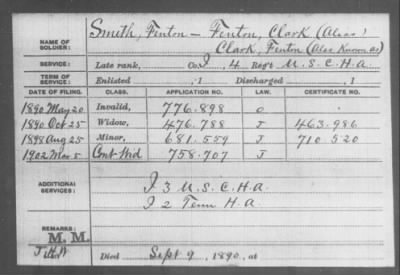 NAME OF SOLDIER: Smith, Fenton — Fenton, Clark (Alias)
Clark, Fenton (Alias Known as)
SERVICE: Late rank, Co. I, 4 Reg't U.S.C.H.A.
TERM OF SERVICE: Enlisted , 1 Discharged , 1
DATE OF FILING. CLASS. APPLICATION NO. LAW. CERTIFICATE NO.
1890 May 20 Invalid, 776.898 O
1890 Oct 25 Widow, 476.788 J 463.986
1898 Aug 25 Minor, 681.559 J 710.520
1902 Mar 5 Cont Wid 758.707 J
ADDITIONAL SERVICES: I 3 U.S.C.H.A.
I 2 Tenn H.A.
REMARKS:
M. M.
Died Sept 9, 1890, at